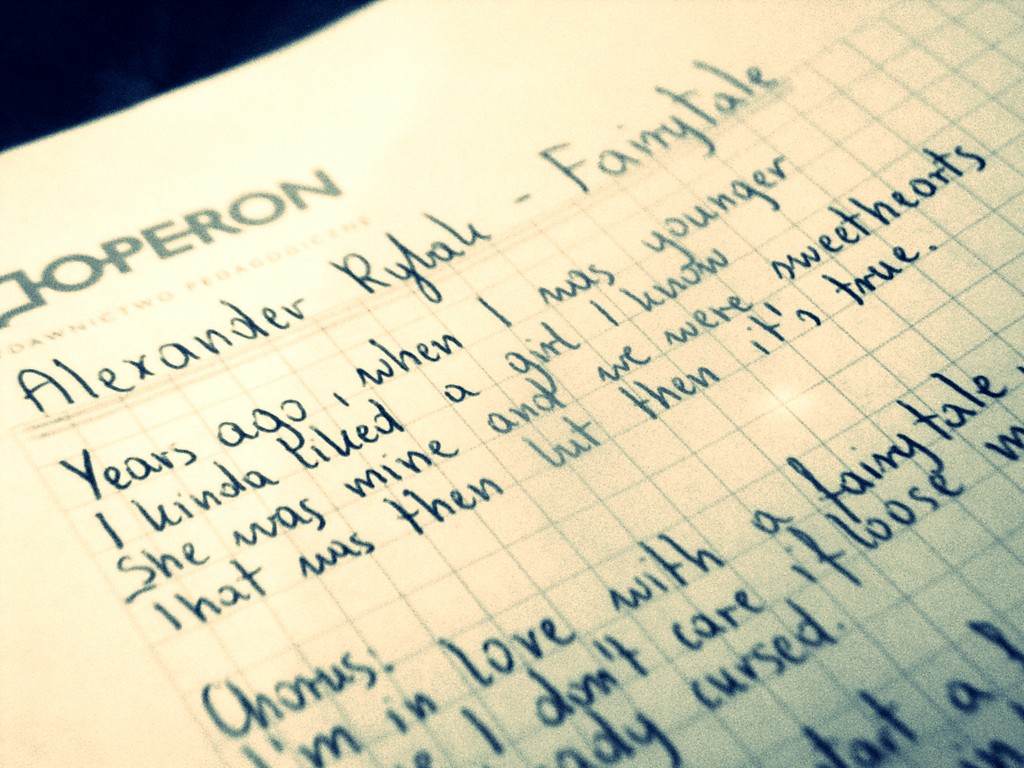 OPERON
DAWNICTWO PEDAGOGICZNE
Alexander Rybak - Fairytale
Years ago, when I was younger
I kinda liked a girl I know
She was mine and we were sweethearts
That was then but then it's true.
Chorus:
I'm in love with a fairytale
I don't care if loose
cursed.
start a
in